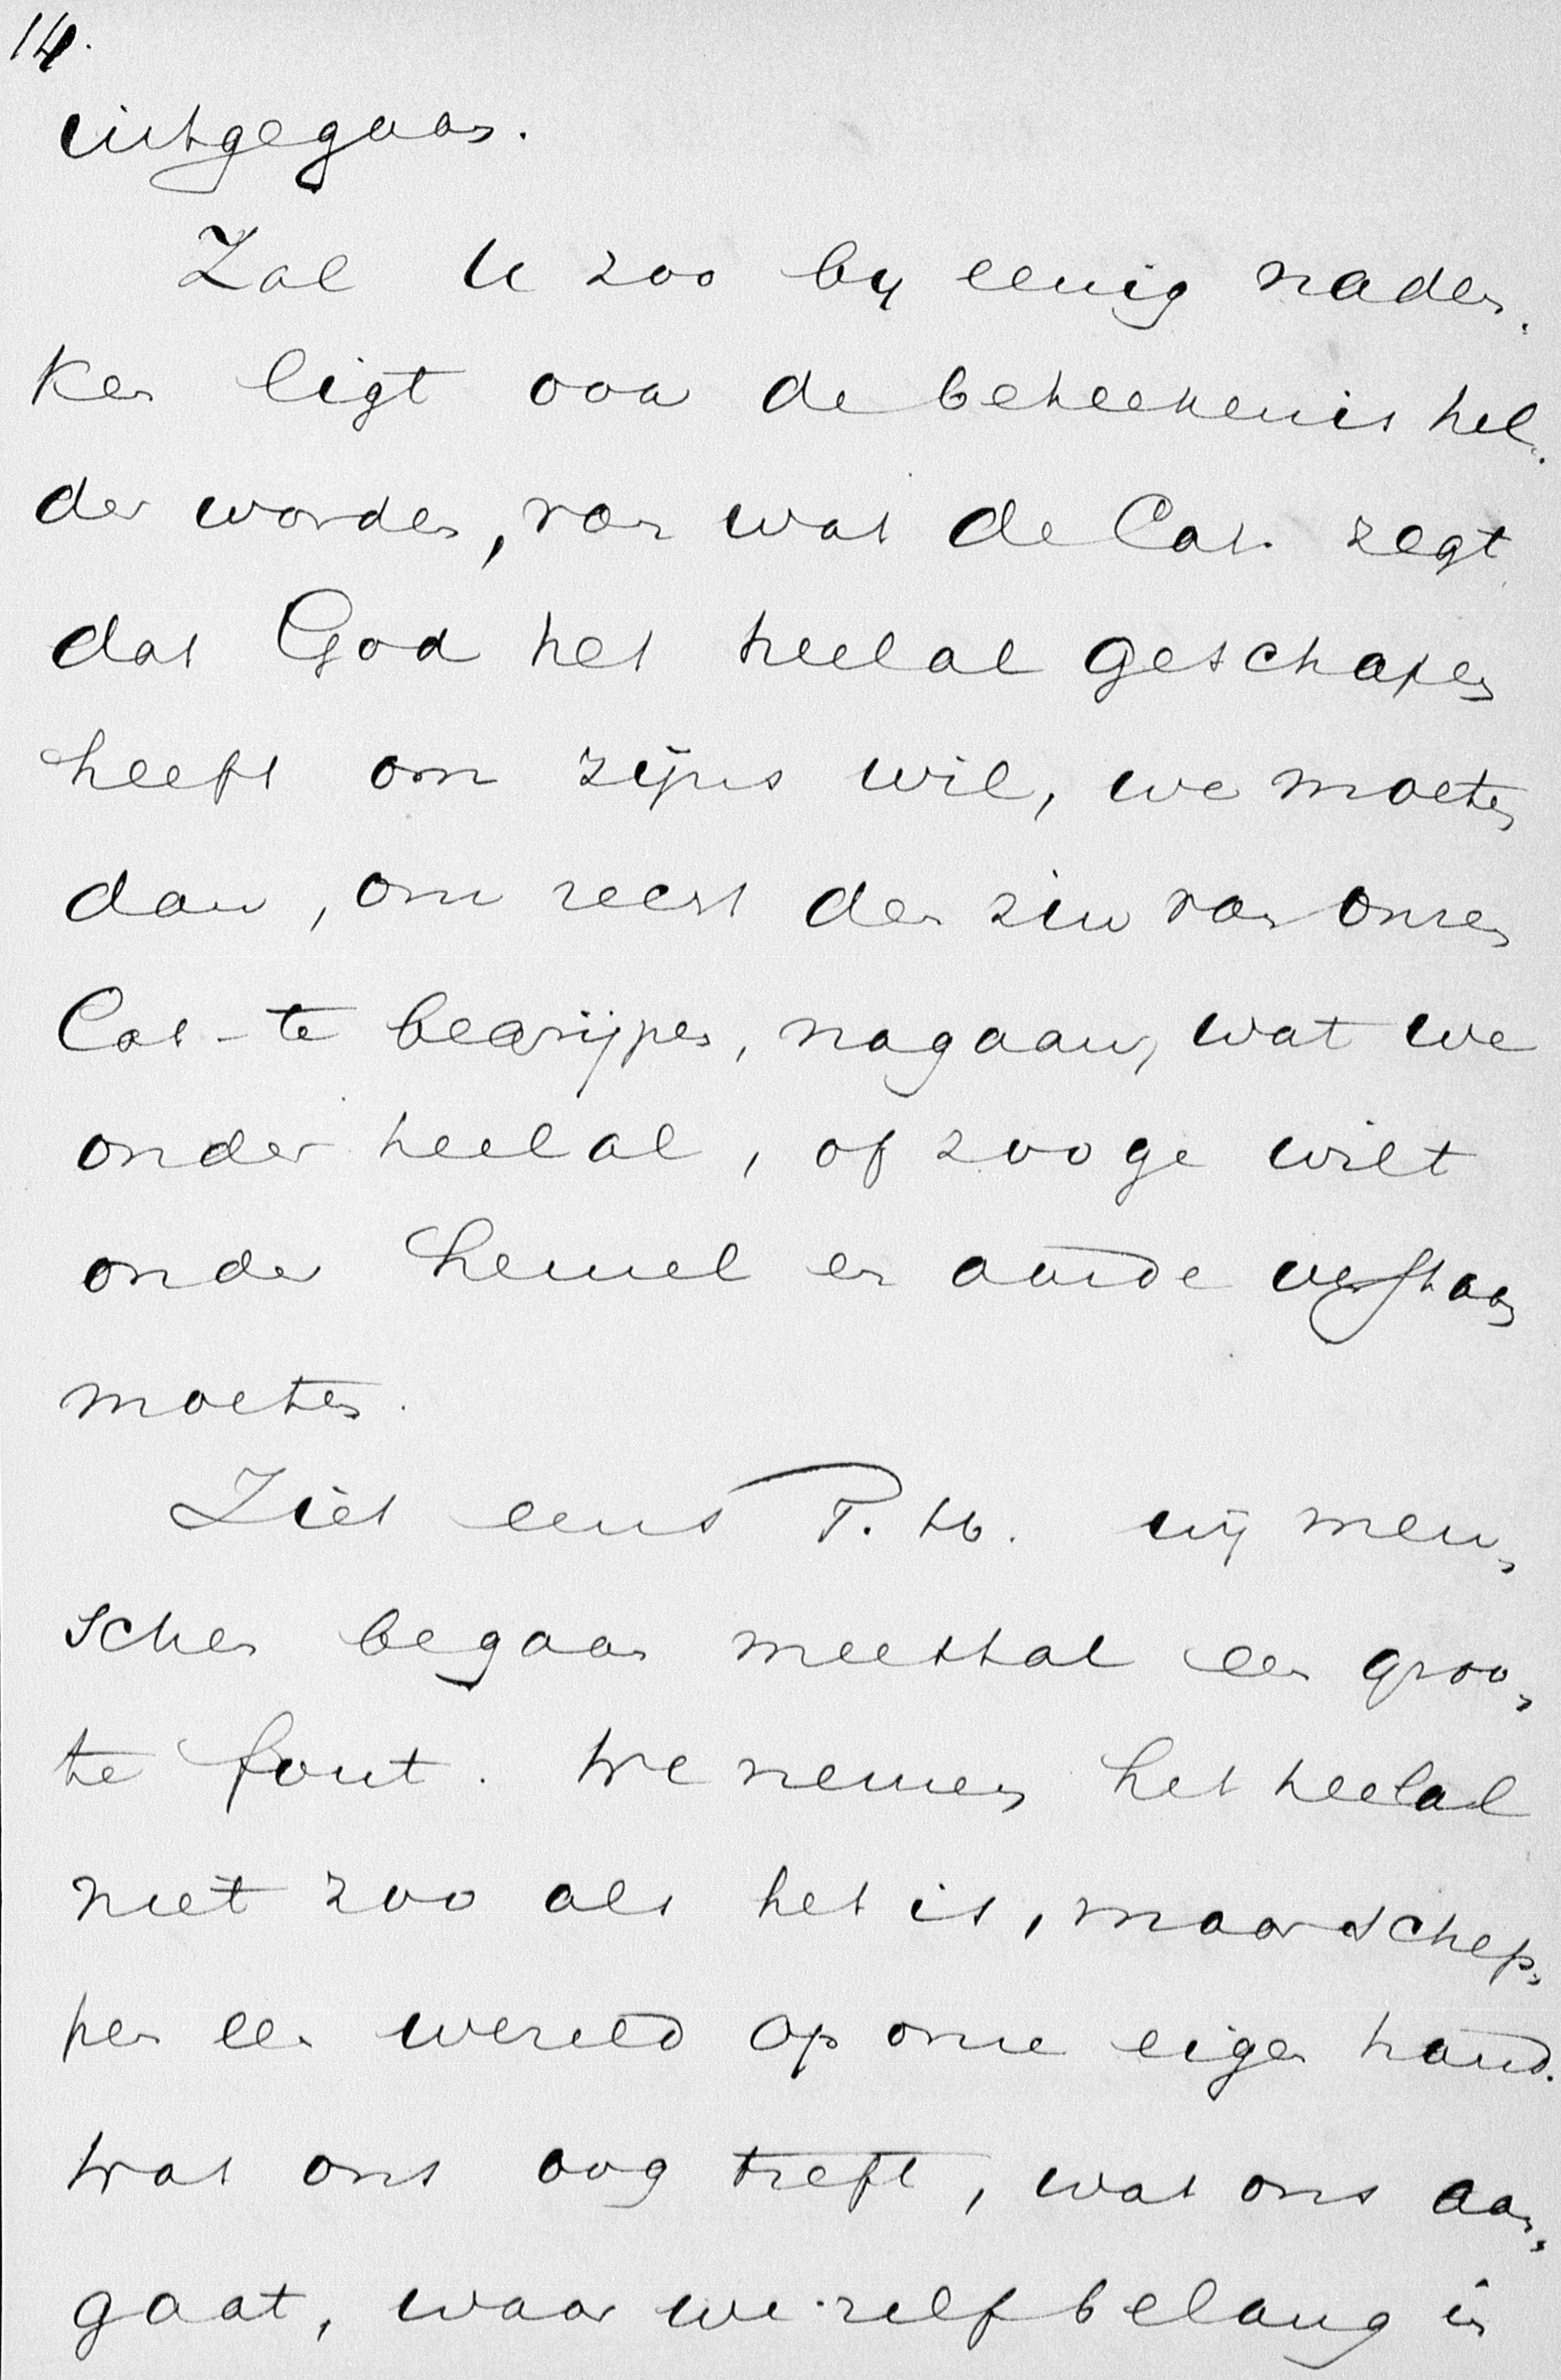 14.
uitgegaan.
Zal U zoo by eenig naden-
ken ligt ook de beteekenis hel-
der worden, van wat de Cat. zegt
dat God het heelal geschapen
heeft om zijns wil, we moeten
dan, om recht den zin van onzen
Cat. te begrijpen, nagaan, wat we
onder heelal, of zoo ge wilt
onder hemel en aarde verstaan
moeten.
Ziet eens T. H. wij men-
schen begaan meestal een groo-
te fout. We nemen het heelal
niet zoo als het is, maar schep-
pen een wereld op onze eigen hand.
Wat ons oog treft, wat ons aan-
gaat, waar we zelf belang in